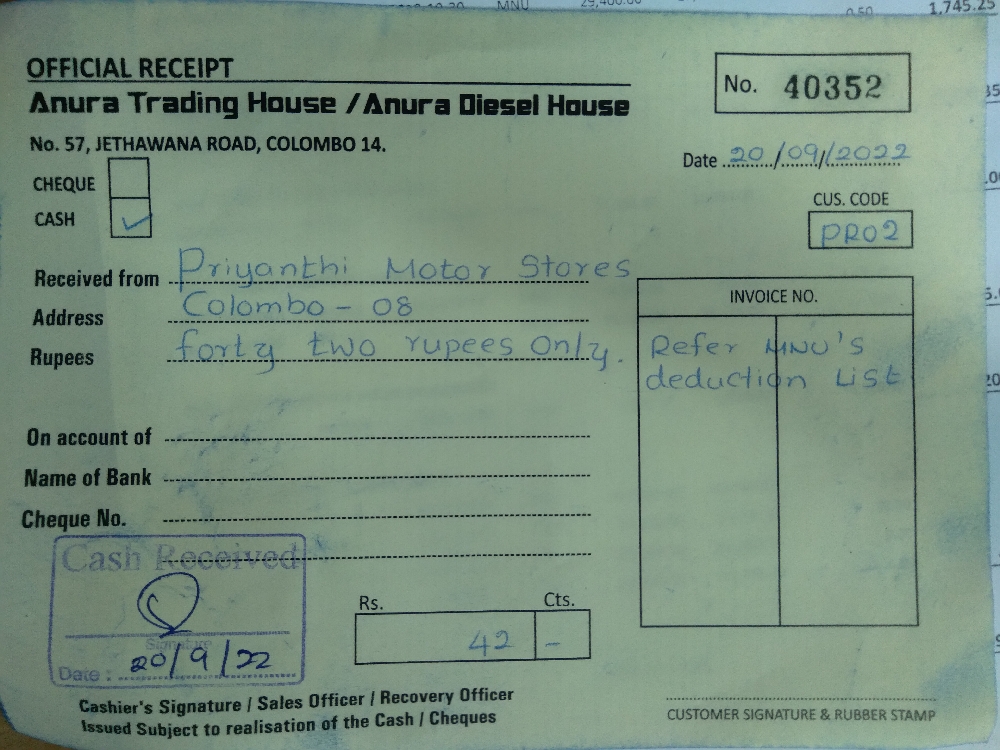 MNU 29,400.00
0.50 1,745.25
OFFICIAL RECEIPT
Anura Trading House / Anura Diesel House
No. 40352
No. 57, JETHAWANA ROAD, COLOMBO 14.
Date 20/09/2022
CHEQUE
CASH ✓
CUS. CODE
PR02
Received from Priyanthi Motor Stores
Address Colombo - 08
Rupees forty two rupees only.
INVOICE NO.
Refer MNU's
deduction List
On account of
Name of Bank
Cheque No.
Cash Received
Signature
Date : 20/9/22
Rs. Cts.
42 -
Cashier's Signature / Sales Officer / Recovery Officer
Issued Subject to realisation of the Cash / Cheques
CUSTOMER SIGNATURE & RUBBER STAMP